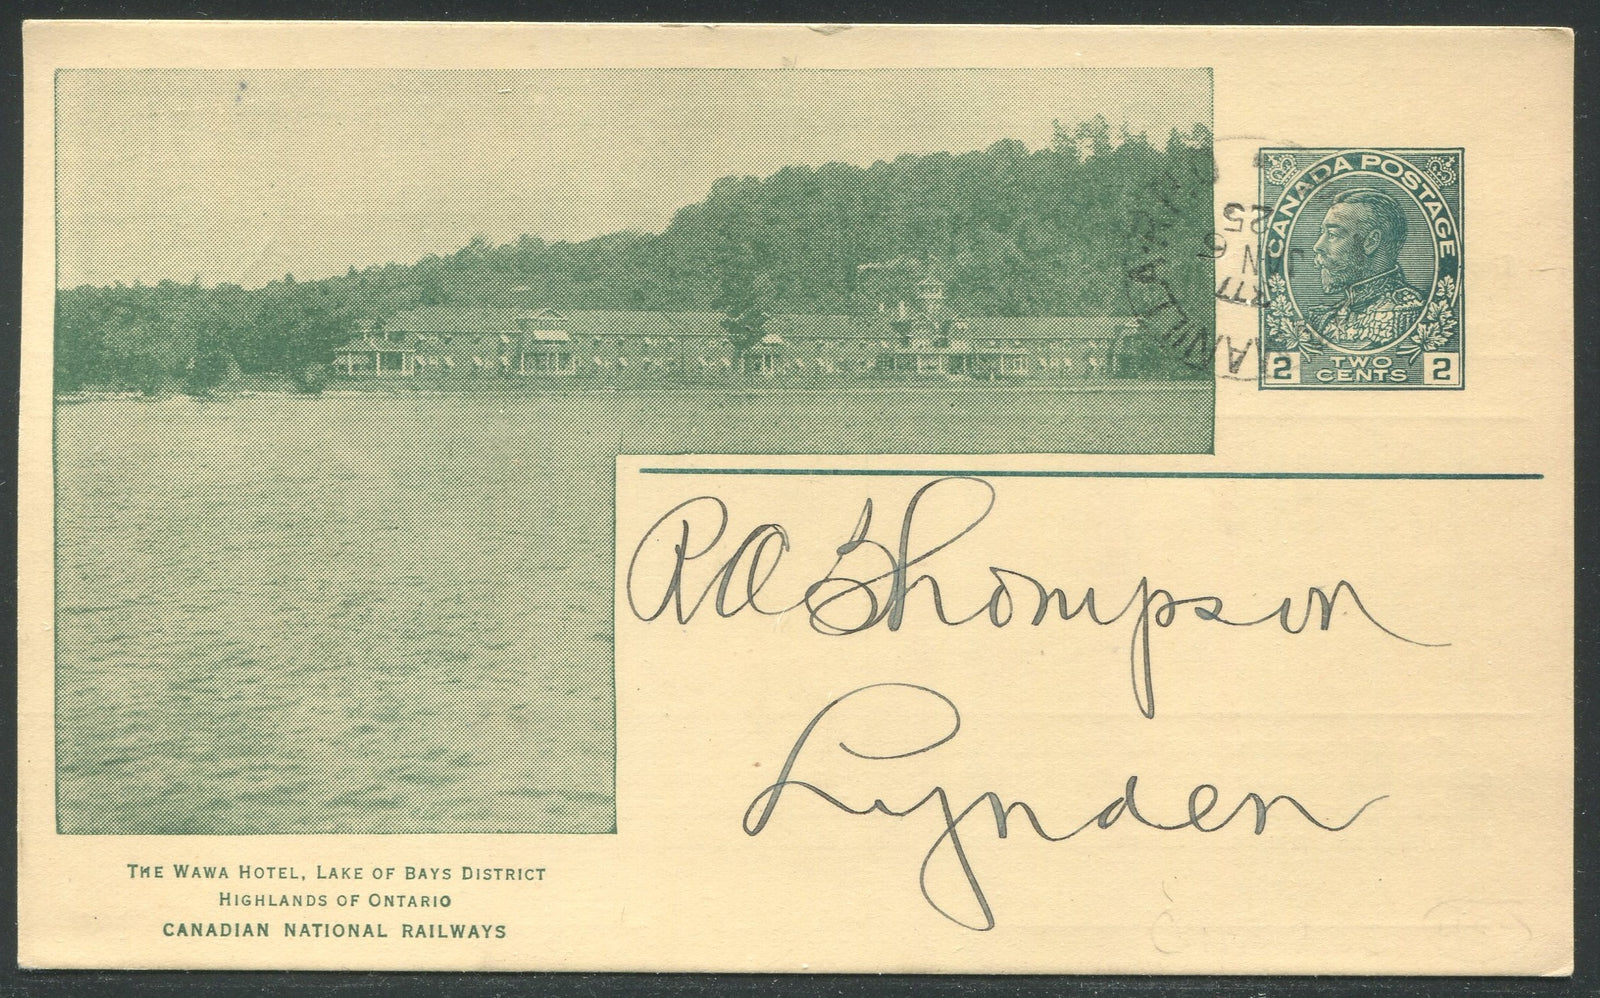 CANADA POSTAGE
2 TWO CENTS 2
JAN 6
25
R A Thompson
Lynden
THE WAWA HOTEL, LAKE OF BAYS DISTRICT
HIGHLANDS OF ONTARIO
CANADIAN NATIONAL RAILWAYS